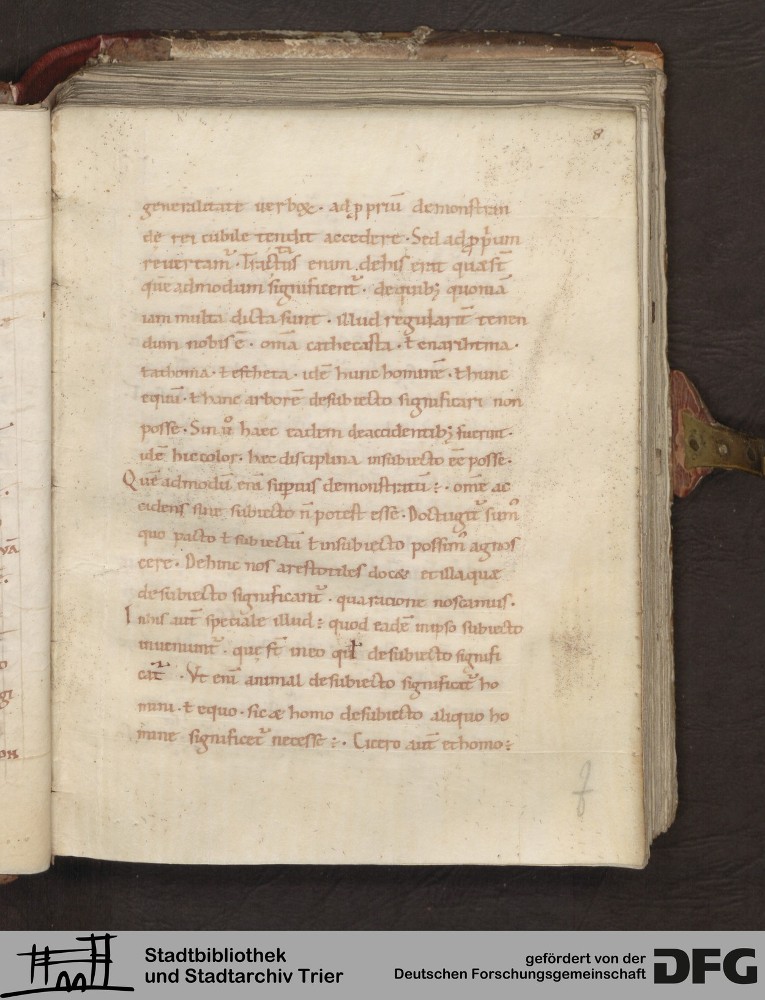 8
generalitate uerboꝝ · ad ꝓpriū demonstran
de rei cubile tendit accedere · Sed ad ꝓp̄rium
reuertam̄ · Tractat̄us enim de his erit quę s̄t
quę admodum significent̄ · de quib; quoniā
iam multa dicta sunt · illud regularit̄ tenen
dum nobis ē · om̄a cathecasta · ł enarihtma ·
tathoma · ł estheta · idē hunc hominē · ł hunc
equū · ł hanc arborē de subiecto significari non
posse · Sin ū haec eadem de accidentib; fuerint ·
idē hic color · hęc disciplina in subiecto eē posse ·
Quē admodū eni suꝑius demonstratū ÷ · omē ac
cidens sine subiecto n̄ potest esse · Doctı igit̄ sum̄
quo pacto ł subiectū ł in subiecto possim̄ agnos
cere · Dehinc nos aristotiles docet et illa quae
de subiecto significant̄ · qua racione noscamus ·
In his aut̄ speciale illud ÷ quod eadē in ipso subiecto
inueniunt̄ · quę s̄t in eo qd̄ de subiecto signifi
cat̄ · Vt eni animal de subiecto significat̄ ho
mini · ł equo · sic et homo de subiecto aliquo ho
mine significet̄ necesse ÷ · Cicero aut̄ et homo ÷
Stadtbibliothek
und Stadtarchiv Trier
gefördert von der
Deutschen Forschungsgemeinschaft
DFG